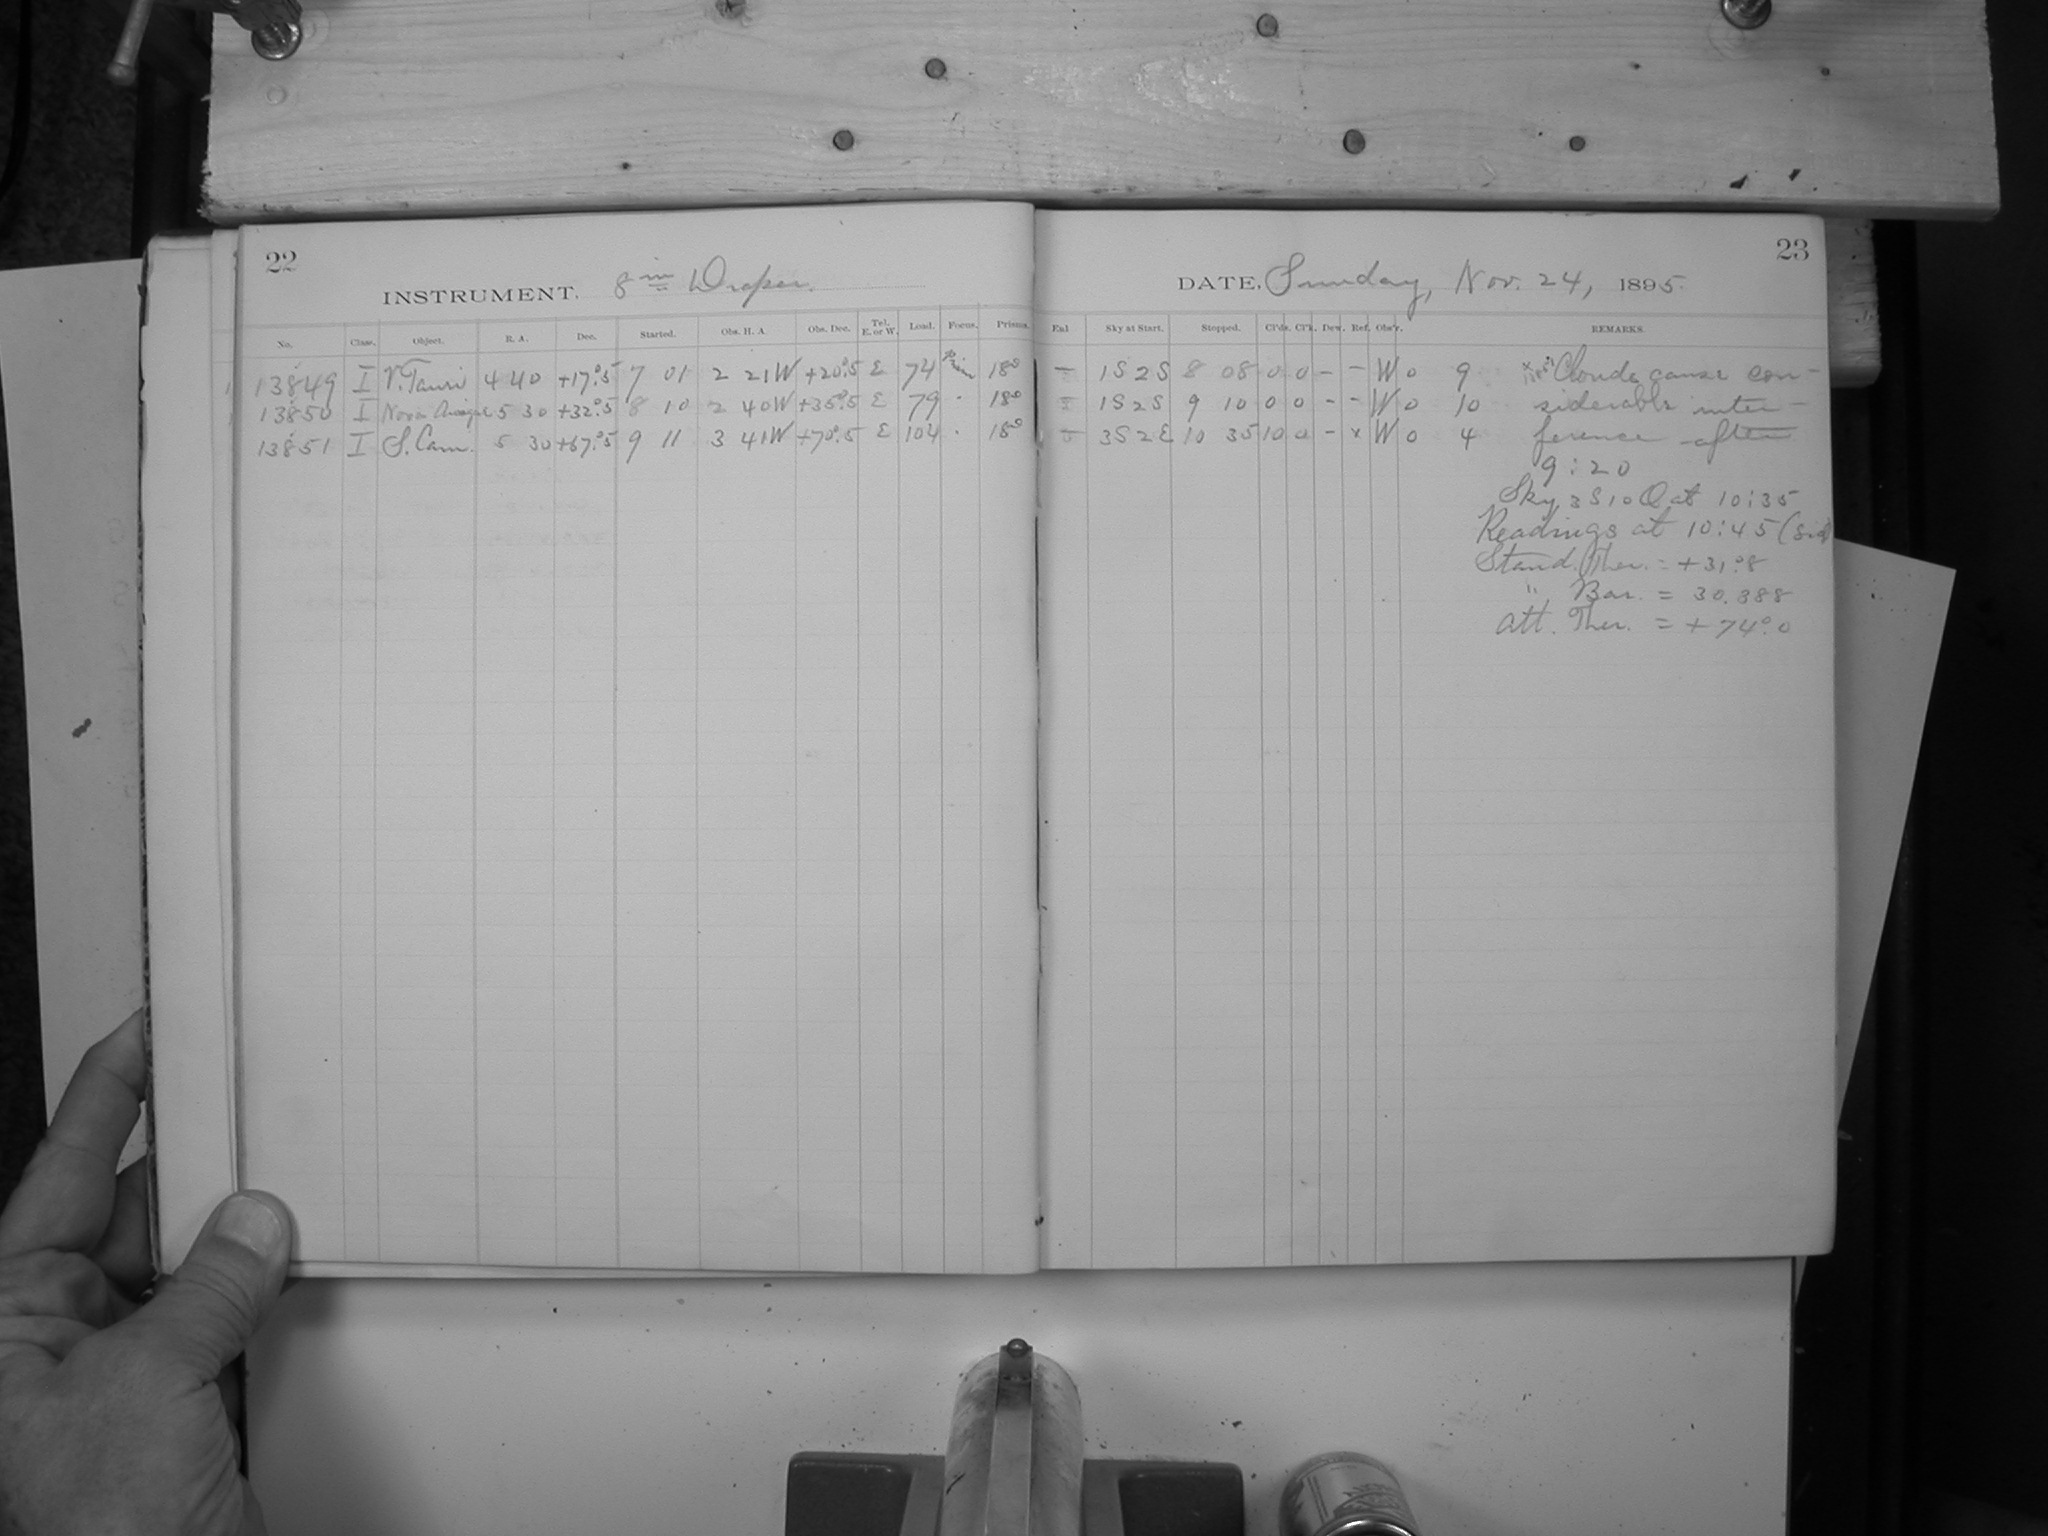 22
INSTRUMENT. 8 in Draper.
No. Class. Object. R. A. Dec. Started. Obs. H. A Obs. Dec. Tel. E. or W. Load. Focus. Prisms.
13849 I V. Tauri 4 40 +17°.5 7 01 2 21W +20°.5 E 74 18°
13850 I Nova Aurigae 5 30 +32°.5 8 10 2 40W +35°.5 E 79 18°
13851 I S. Cam. 5 30 +67°.5 9 11 3 41W +70°.5 E 104 18°
23
DATE, Sunday, Nov. 24, 1895.
Sky at Start. Stopped. Cl'ds. Cl'k. Dew. Ref. Obs'r. REMARKS.
— 1S2S 8 08 0 0 – – W 0 9 Clouds cause con-
1S2S 9 10 0 0 – – W 0 10 siderable inter-
3S2E 10 35 10 0 – x W 0 4 ference after
9:20
Sky 3S10Q at 10:35
Readings at 10:45 (Sid
Stand. Ther. = +31°.8
" Bar. = 30.388
Att. Ther. = +74°.0